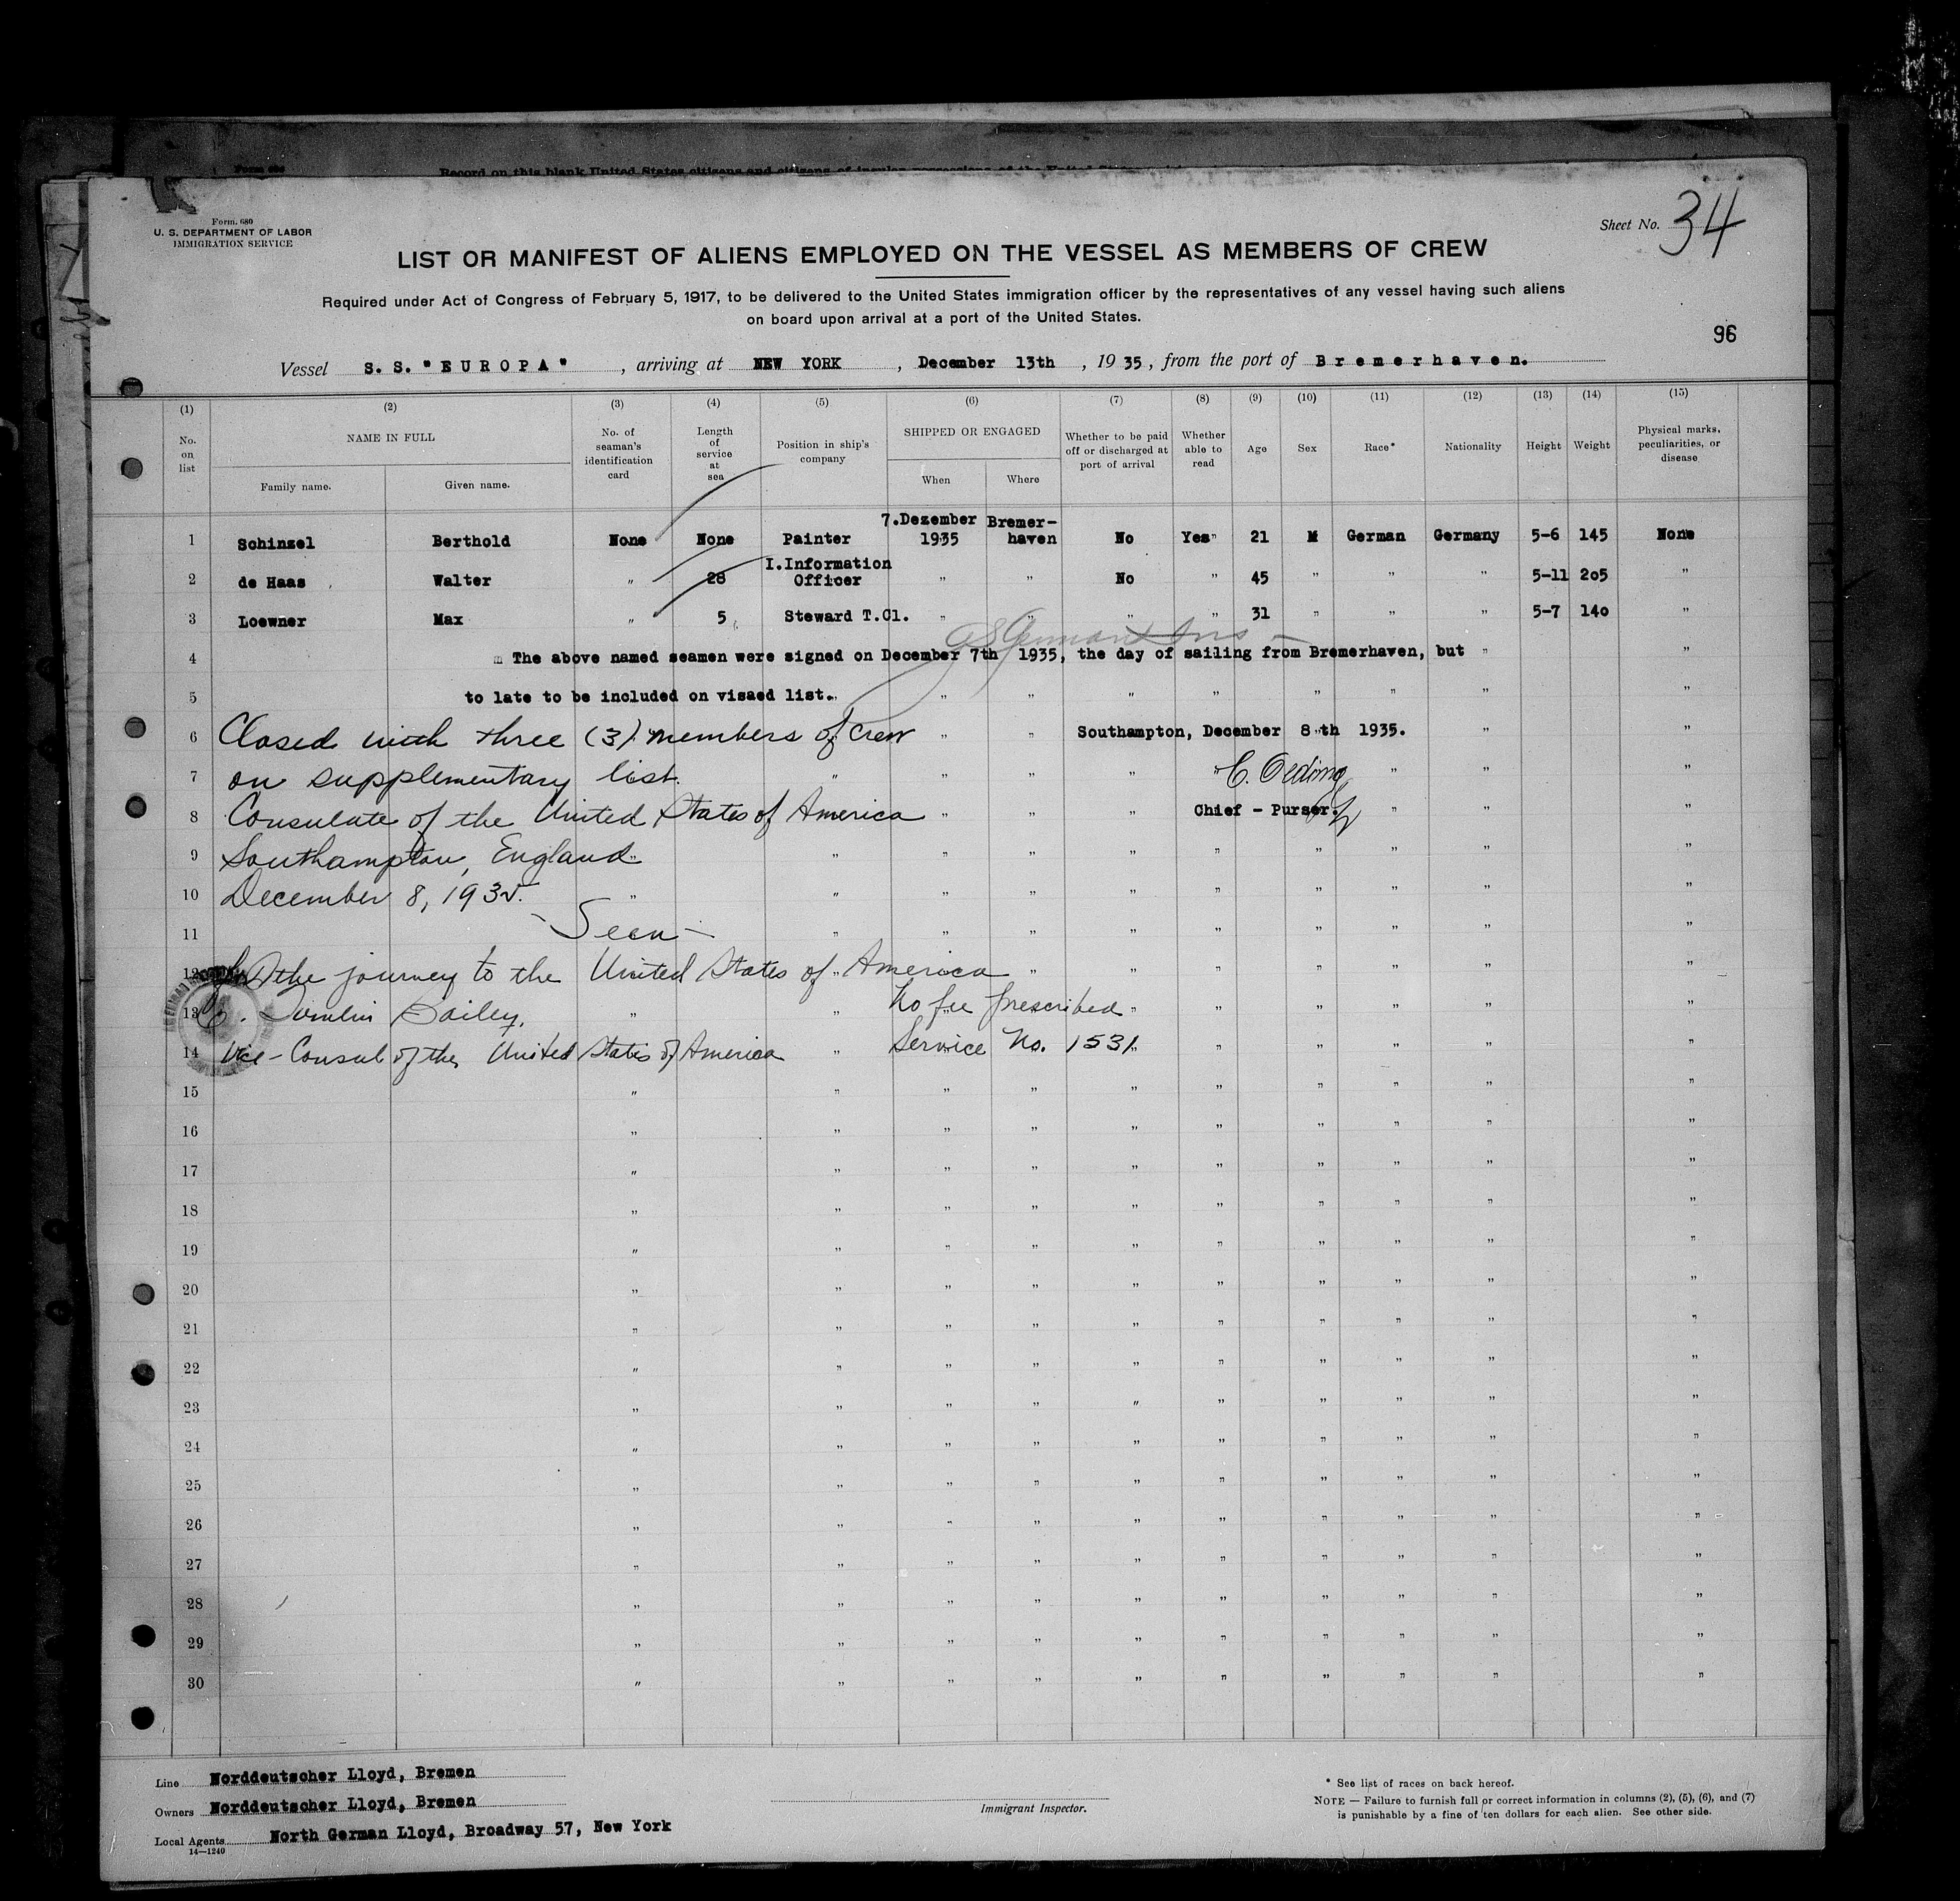 Form. 680
U. S. DEPARTMENT OF LABOR
IMMIGRATION SERVICE
Sheet No. 34
LIST OR MANIFEST OF ALIENS EMPLOYED ON THE VESSEL AS MEMBERS OF CREW
Required under Act of Congress of February 5, 1917, to be delivered to the United States immigration officer by the representatives of any vessel having such aliens
on board upon arrival at a port of the United States.
96
Vessel S. S. "EUROPA" , arriving at NEW YORK , December 13th , 1935, from the port of Bremerhaven.
(1) (2) (3) (4) (5) (6) (7) (8) (9) (10) (11) (12) (13) (14) (15)
No. on list
NAME IN FULL
Family name. Given name.
No. of seaman's identification card
Length of service at sea
Position in ship's company
SHIPPED OR ENGAGED
When Where
Whether to be paid off or discharged at port of arrival
Whether able to read
Age
Sex
Race*
Nationality
Height
Weight
Physical marks, peculiarities, or disease
1 Schinzel Berthold None None Painter 7.Dezember 1935 Bremer-haven No Yes 21 M German Germany 5-6 145 None
2 de Haas Walter " 28 I.Information Officer " " No " 45 " " " 5-11 205 "
3 Loewner Max " 5 Steward T.Cl. " " " " 31 " " " 5-7 140 "
4 The above named seamen were signed on December 7th 1935, the day of sailing from Bremerhaven, but " "
5 to late to be included on visaed list. " " " " " " " "
6 Closed with three (3) members of crew " " Southampton, December 8th 1935. " "
7 on supplementary list. " " " " C. Oeding " " "
8 Consulate of the United States of America " " " Chief - Purser. " " "
9 Southampton, England " " " " " " " " "
10 December 8, 1935. " " " " " " " " " "
11 Seen " " " " " " " " "
12 the journey to the United States of America " " " " " " "
13 Bailey, " " No fee prescribed " " " " "
14 Vice-Consul of the United States of America " Service No. 1531 " " " " "
15 " " " " " " " " " "
16 " " " " " " " " " "
17 " " " " " " " " " "
18 " " " " " " " " " "
19 " " " " " " " " " "
20 " " " " " " " " " "
21 " " " " " " " " " "
22 " " " " " " " " " "
23 " " " " " " " " " "
24 " " " " " " " " " "
25 " " " " " " " " " "
26 " " " " " " " " " "
27 " " " " " " " " " "
28 " " " " " " " " " "
29 " " " " " " " " " "
30 " " " " " " " " " "
Line Norddeutscher Lloyd, Bremen
Owners Norddeutscher Lloyd, Bremen
Local Agents North German Lloyd, Broadway 57, New York
14—1240
Immigrant Inspector.
* See list of races on back hereof.
NOTE — Failure to furnish full or correct information in columns (2), (5), (6), and (7)
is punishable by a fine of ten dollars for each alien. See other side.